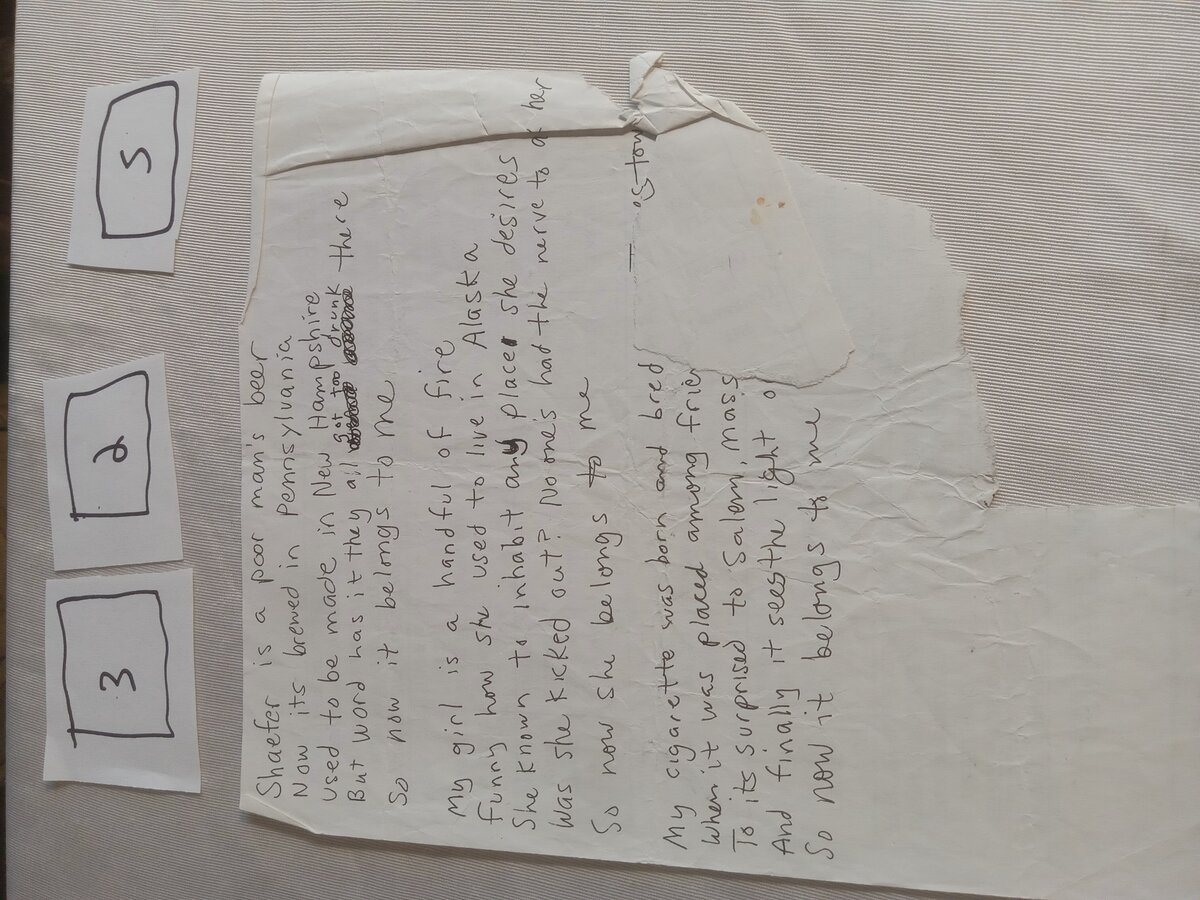 3
2
5
Shaefer is a poor man's beer
Now its brewed in Pennsylvania
used to be made in New Hampshire
But word has it they all got too drunk there
So now it belongs to me
My girl is a handful of fire
funny how she used to live in Alaska
She known to inhabit any place she desires
Was she kicked out? No one's had the nerve to her
So now she belongs to me
My cigarette was born and bred
When it was placed among
To its surprised to Salem, mass
And finally it sees the light
So now it belongs to me